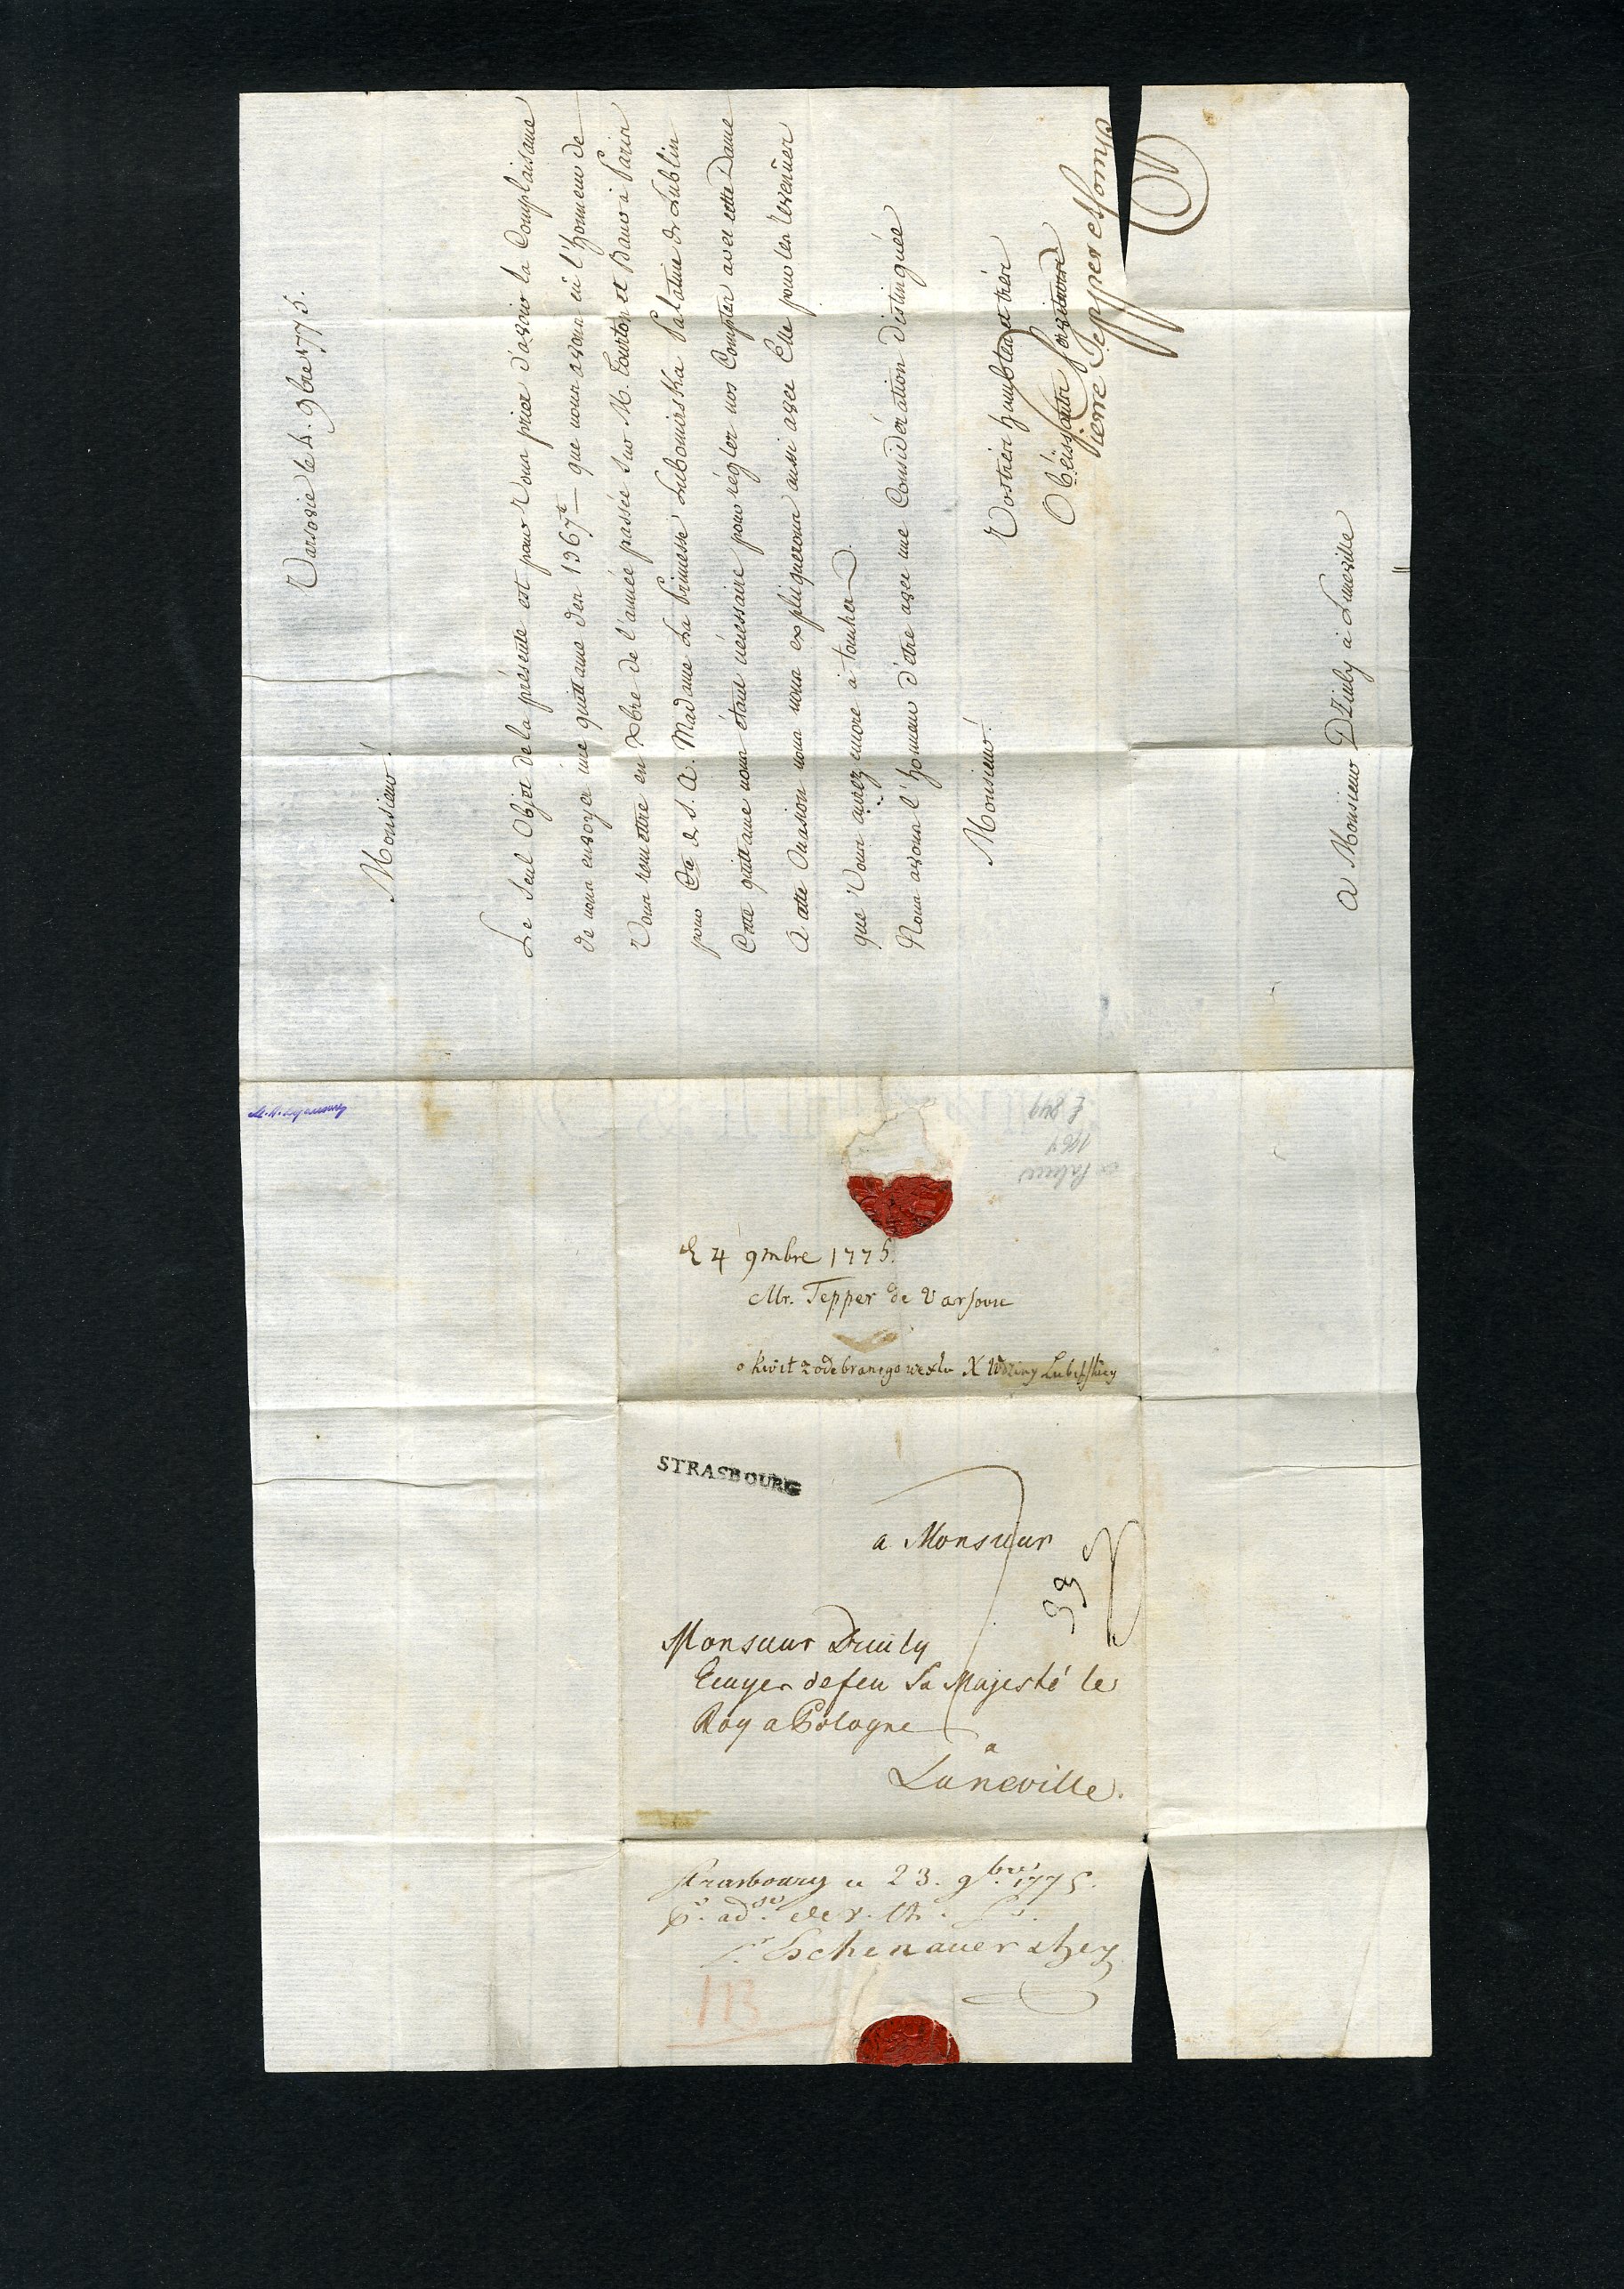 Varsovie le 4. 9bre 1775.
Monsieur!
Le seul Objet de la présente est pour Vous prier d'avoir la Complaisance
de nous envoyer une quittance des 1367 # que nous avons eû l'honneur de
Vous remettre en Xbre de l'année passée sur M. Tourton et Baur à Paris
pour Cte de S. A. Madame La Princesse Lubomirska Palatine de Lublin
Cette quittance nous étant nécessaire pour régler nos Comptes avec cette Dame
A cette Occasion nous nous expliquerons aussi avec Elle pour les revenües
que Vous aurez encore à toucher
Nous avons l'honneur d'être avec une Considération distinguée
Monsieur!
Vos très humbles et très
Obéissants serviteurs
Pierre Tepper et Comp
A Monsieur Dziuly à Luneville
ex Palmer
1964
£ 849
le 4 9mbre 1775.
Mr. Tepper de Varsovie
o kwit z odebranego wexlu X Wdziny Lubelskiey
STRASBOURG
a Monsieur
33
Monsieur Dziuly
Ecuyer de feu Sa Majesté le
Roy a Pologne
a
Luneville.
Strasbourg le 23. 9bre 1775.
113